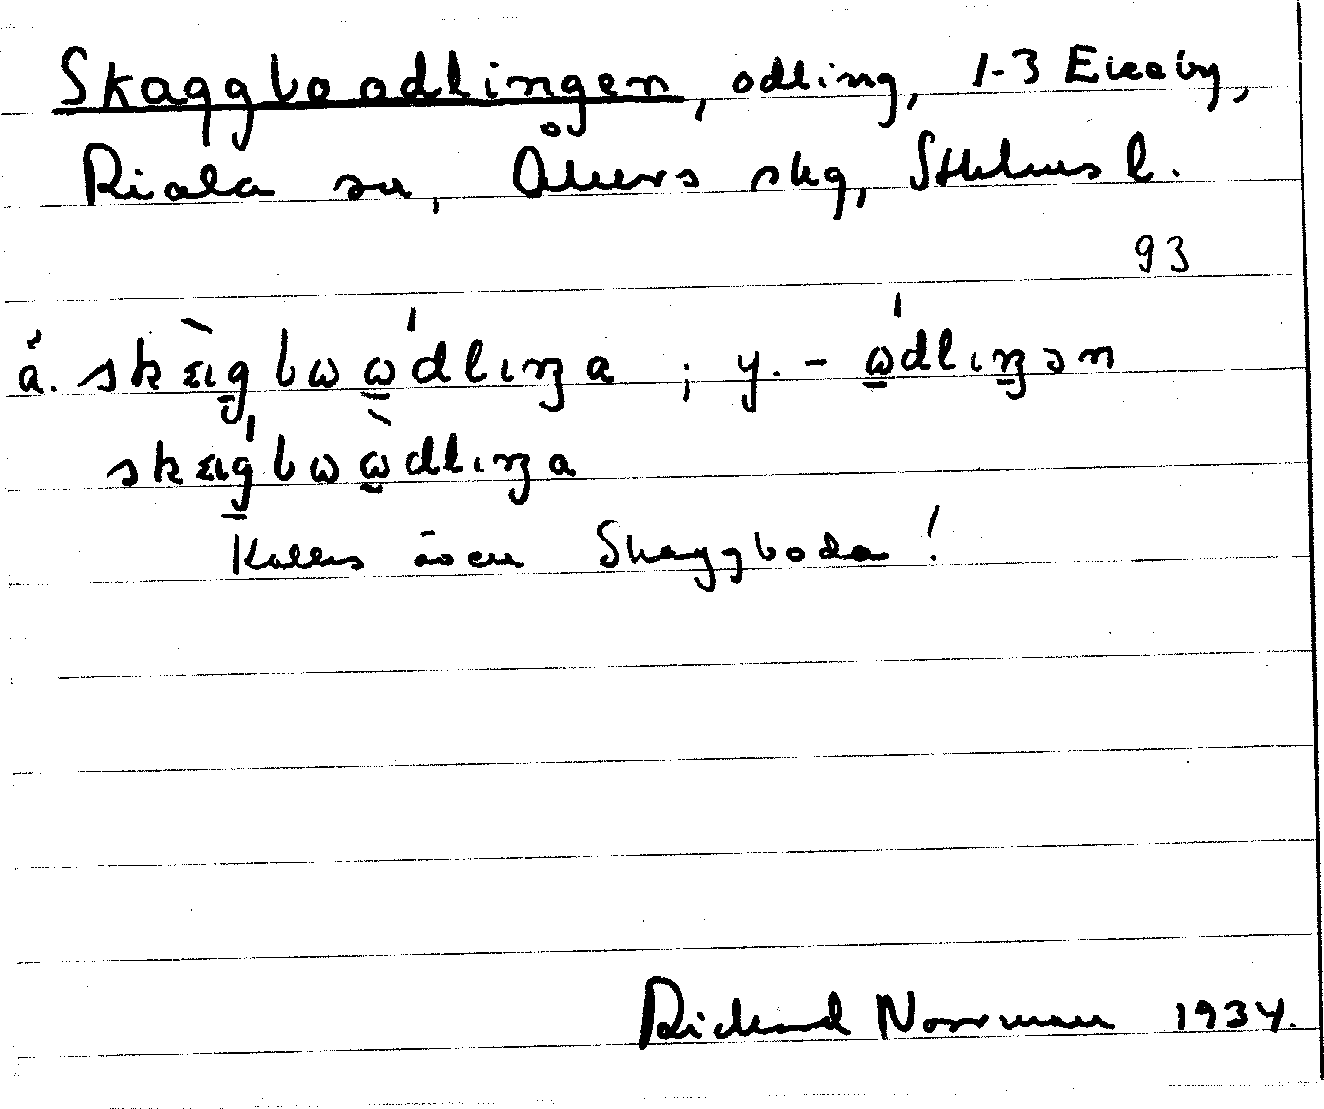 Skaggboodlingen, odling, 1-3 Ekeby,
Riala sn, Åkers skg, Sthlms l.
93
ä. skæ̀g̲bωώ̲dlıŋa ; y. - ώ̲dlıŋ̲ən
skæǵ̲bωὼ̲dlıŋa
Kallas även Skaggboda!
Richard Norrman 1934.